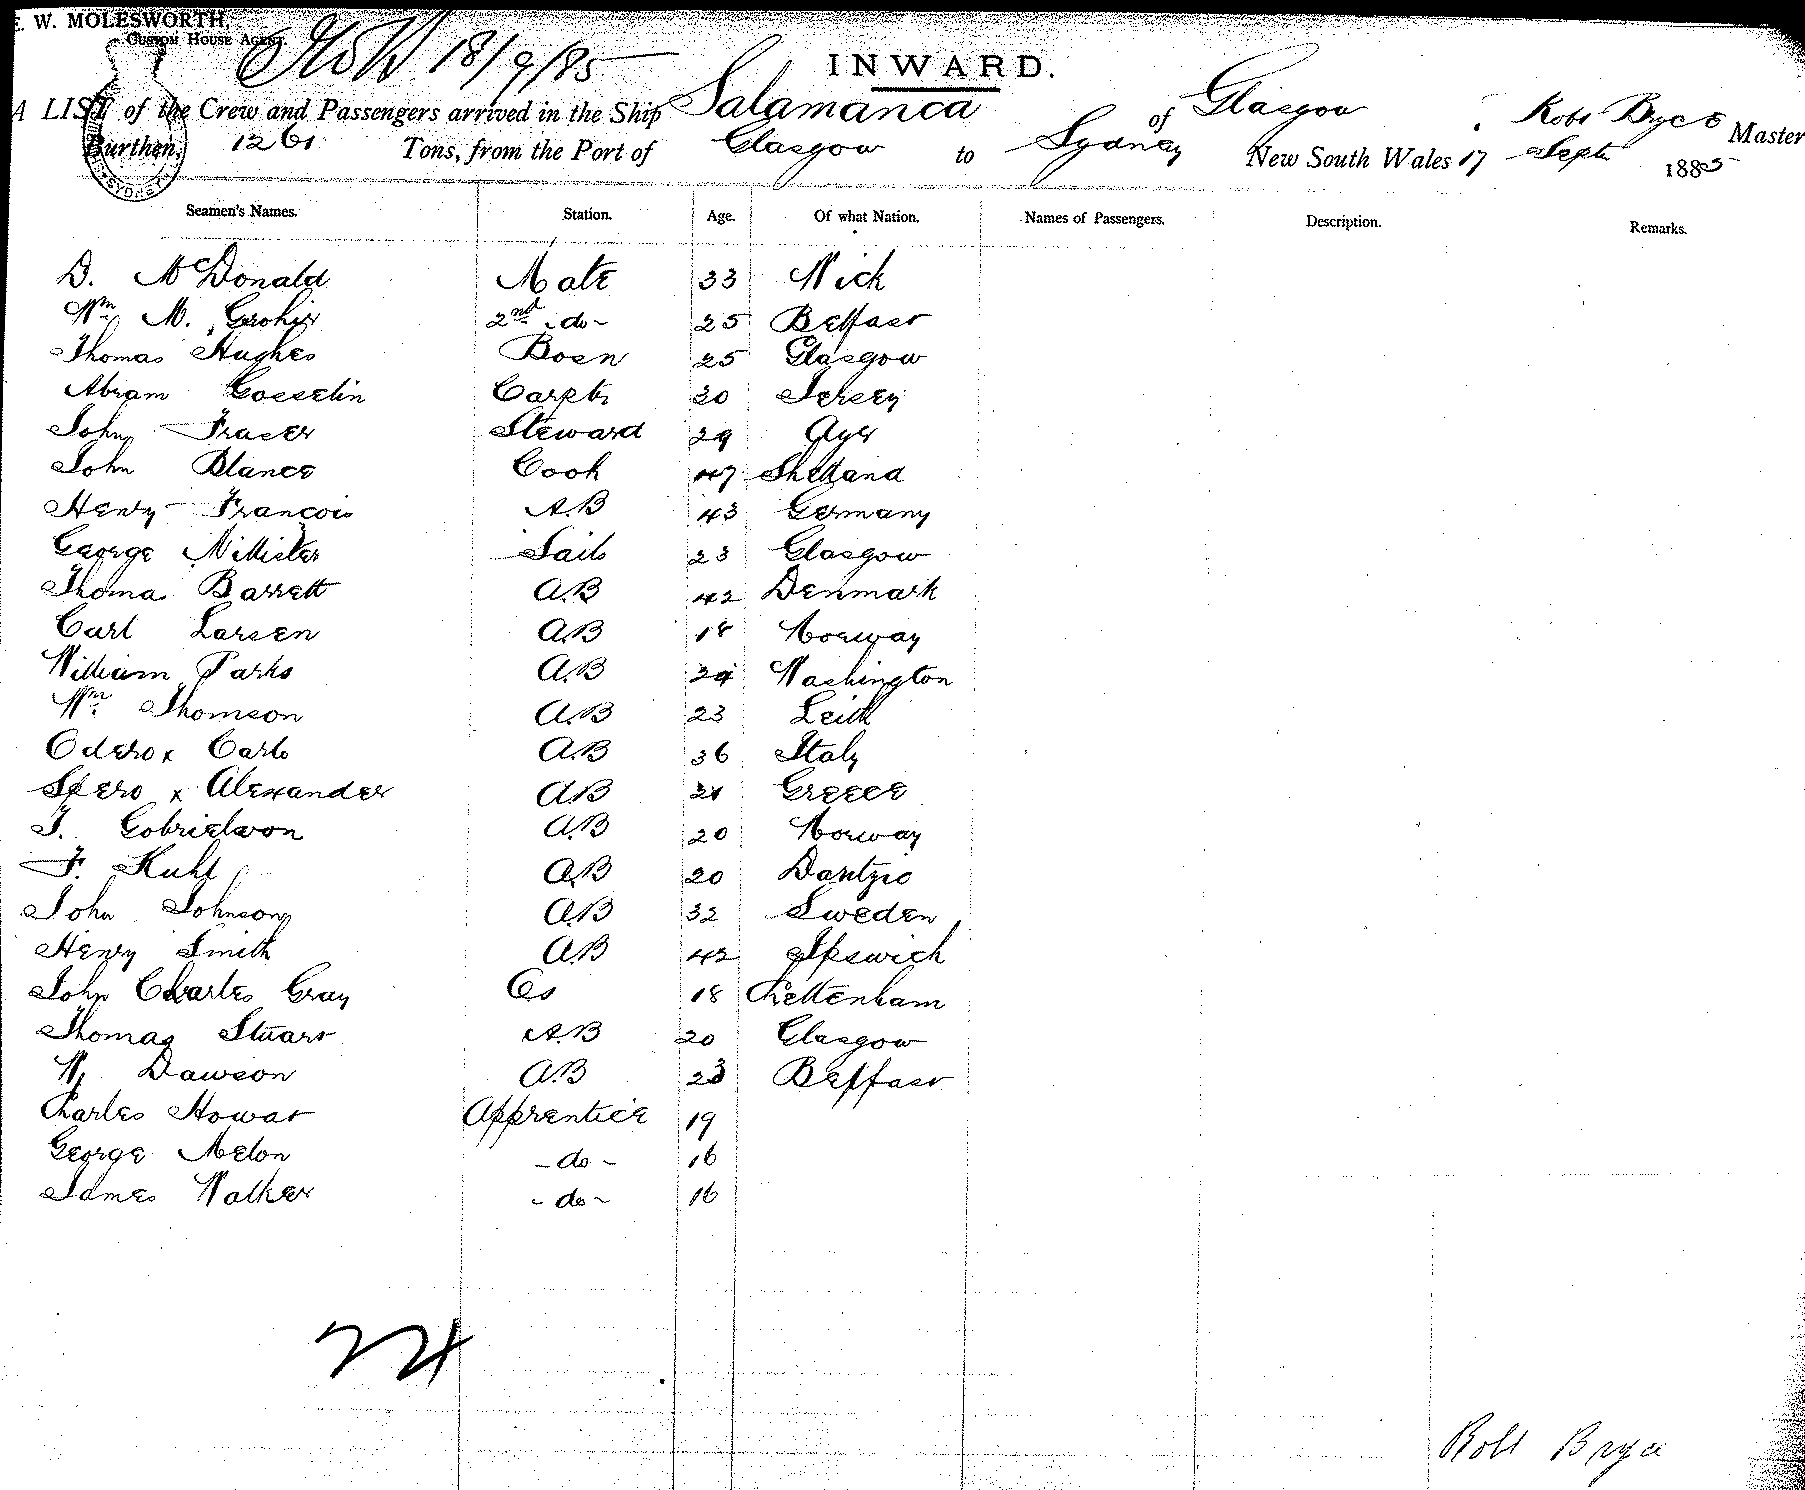 E. W. MOLESWORTH,
Custom House Agent.
18/9/85
INWARD.
A LIST of the Crew and Passengers arrived in the Ship Salamanca of Glasgow, Robt Bryce Master
Burthen, 1261 Tons, from the Port of Glasgow to Sydney New South Wales 17 Sept 1885
SYDNEY
Seamen's Names. Station. Age. Of what Nation. Names of Passengers. Description. Remarks.
D. McDonald Mate 33 Wick
Wm M. 2nd -do- 25 Belfast
Thomas Hughes Bosn 25 Glasgow
Abram Gosselin Carptr 20 Jersey
John Fraser Steward 29 Ayr
John Blance Cook 47 Shetland
Henry Francois A.B 43 Germany
George Sails 23 Glasgow
Thomas Barrett A.B 42 Denmark
Carl Larsen A.B 18 Norway
William Parks A.B 24 Washington
Wm Thomson A.B 23 Leith
Odero x Carlo A.B 36 Italy
Spero x Alexander A.B Greece
Gobrielson A.B 20 Norway
F. Kuhl A.B 20 Dantzic
John Johnson A.B 32 Sweden
Henry Smith A.B 42 Ipswich
John Charles Gray Os 18 Cheltenham
Thomas Stuart A.B 20 Glasgow
W. Dawson A.B 23 Belfast
Charles Howat Apprentice 19
George Melon -do- 16
James Walker -do- 16
24
Robt Bryce